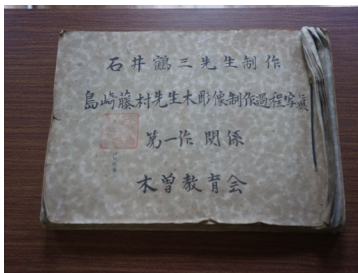 石井鶴三先生制作
島崎藤村先生木彫像制作過程写真
第一作関係
木曽教育会